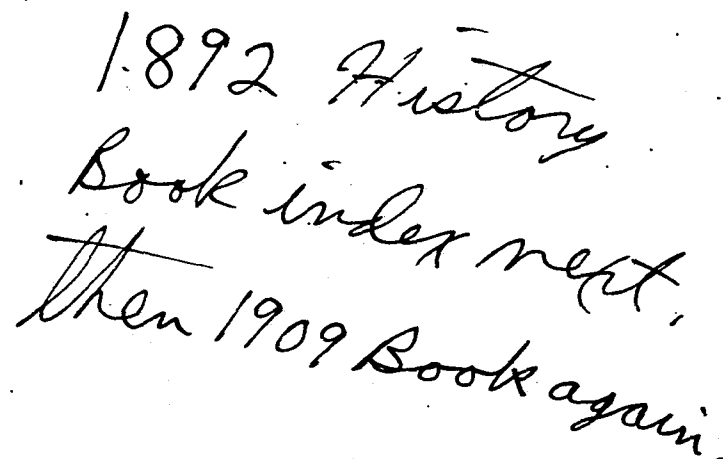 1892 History
Book index next,
then 1909 Book again.